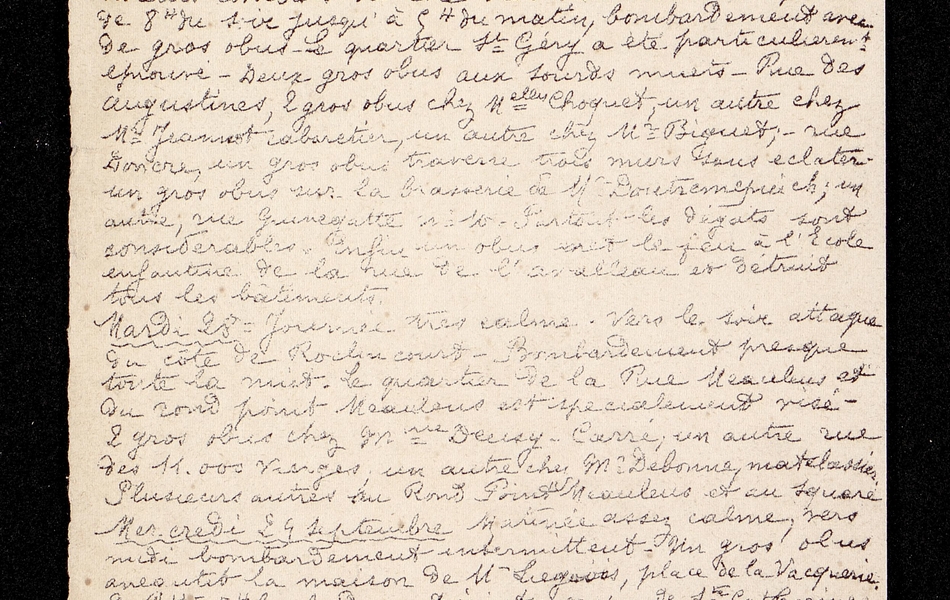 de 8 h du soir jusqu'à 5 h du matin, bombardement avec
de gros obus - Le quartier St Géry a été particulieremt
éprouvé - Deux gros obus aux sourds muets - Rue des
Augustines, 2 gros obus chez Melles Choquet, un autre chez
Mr Jeannot cabaretier, un autre chez Mr Biguet; - rue
Doncre, un gros obus traverse trois murs sans eclater
un gros obus sur la brasserie de Mr ; un
autre, rue No 10 - Partout les dégats sont
considerables - Enfin un obus met le feu à l'Ecole
enfantine de la rue de et détruit
tous les bâtiments
Mardi 28 - Journée très calme - Vers le soir attaque
du côté de Roclincourt - Bombardement presque
toute la nuit - Le quartier de la Rue Meaulens et
du rond point Meaulens est specialement visé -
2 gros obus chez Mme Deusy - Carré, un autre rue
des 11.000 Vierges, un autre chez Mr Debonne, matelassier,
Plusieurs autres au Rond Point Meaulens et au Square
Mercredi 29 Septembre Matinée assez calme, vers
midi bombardement intermittent - Un gros obus
aneantit la maison de Mr , place de la Vacquerie.